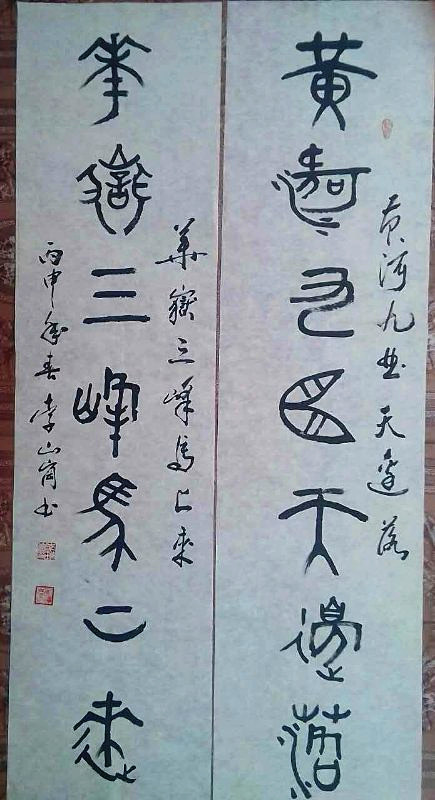 黃河九曲天邊落
黄河九曲天邊落
華嶽三峰馬上來
華嶽三峰馬上來
丙申年李山岗书